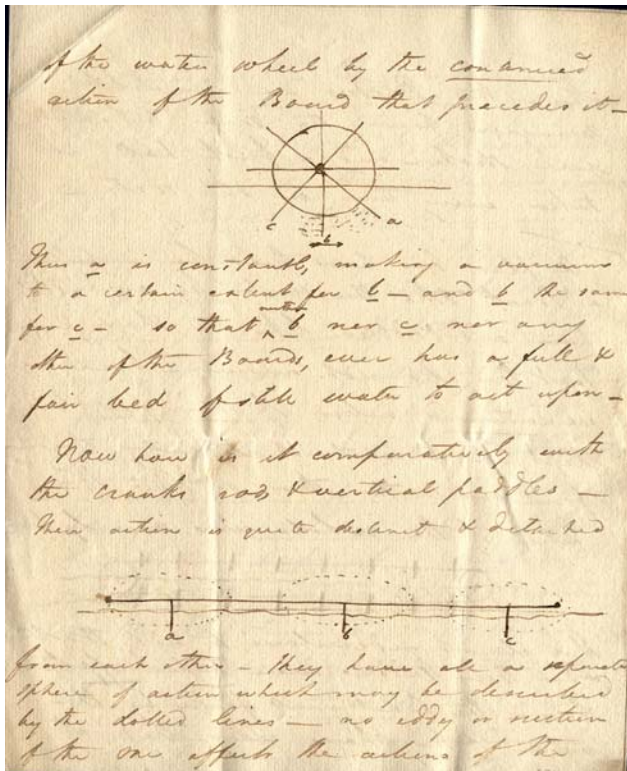 of the water wheel by the continued
action of the Board that precedes it –
c
a
b
Thus a is constantly making a vacuum
to a certain extent for b – and b the same
for c – so that neither b nor c nor any
other of the Boards, ever has a full &
fair bed of still water to act upon –
Now how is it comparatively with
the cranks rods & vertical paddles –
Their action is quite distinct & detached
a
b
c
from each other – they have all a separate
sphere of action which may be described
by the dotted lines – no eddy or suction
of the one affects the actions of the